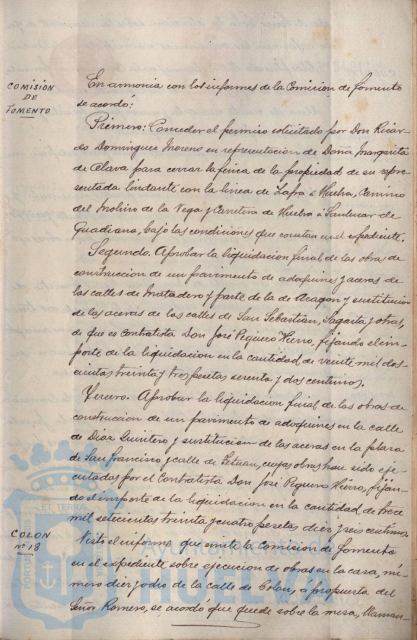 COMISIÓN
DE
FOMENTO
En armonia con los informes de la Comision de Fomento
se acordó:
Primero: Conceder el permiso solicitado por Don Ricar-
do Dominguez Moreno en representacion de Doña Margarita
de Alava para cerrar la finca de la propiedad de su repre-
sentada lindante con la linea de Zafra á Huelva, Camino
del Molino de la Vega y Carretera de Huelva á Sanlucar de
Guadiana, bajo las condiciones que constan en el espediente.
Segundo. Aprobar la liquidacion final de las obras de
construccion de un pavimento de adoquines y aceras de
las calles de Matadero y parte de la de Aragon y sustitucion
de las aceras de las calles de San Sebastian, Sagasta y otras,
de que es contratista Don José Peguero Hierro, fijando el im-
porte de la liquidacion en la cantidad de veinte mil dos-
cientas treinta y tres pesetas setenta y dos centimos.
Tercero. Aprobar la liquidacion final de las obras de
construccion de un pavimento de adoquines en la calle
de Diaz Quintero y sustitucion de las aceras en la plaza
de San Francisco y calle de Tetuan, cuyas obras han sido eje-
cutadas por el Contratista Don José Peguero Hierro, fijan-
do el importe de la liquidacion en la cantidad de trece
mil setecientas treinta y cuatro pesetas diez y seis centimos.
COLON
nº 18
Visto el informe que emite la Comision de Fomento
en el expediente sobre ejecucion de obras en la casa, nú-
mero diez y ocho de la calle de Colon, á propuesta del
Señor Romero, se acordó que quede sobre la mesa,
ET TERRA
Ayuntamiento de
HUELVA